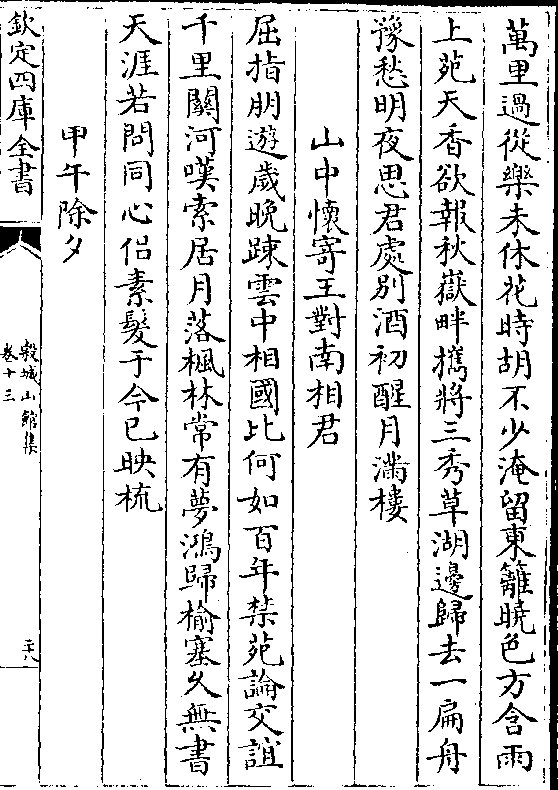 萬里過從樂未休花時胡不少淹留東籬曉色方含雨
上苑天香欲報秋嶽畔攜將三秀草湖邊歸去一扁舟
豫愁明夜思君處別酒初醒月滿樓
山中懷寄王對南相君
屈指朋遊歲晚踈雲中相國比何如百年禁苑論交誼
千里關河嘆索居月落楓林常有夢鴻歸榆塞久無書
天涯若問同心侣素髮于今已映梳
甲午除夕
欽定四庫全書
榖城山館集
卷十三
二十八